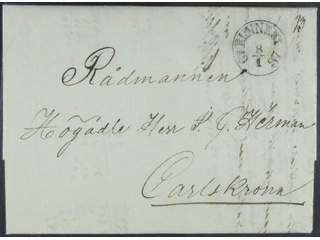 8
1
Rådmannen
Högädle Herr P. G. Herman
Carlskrona